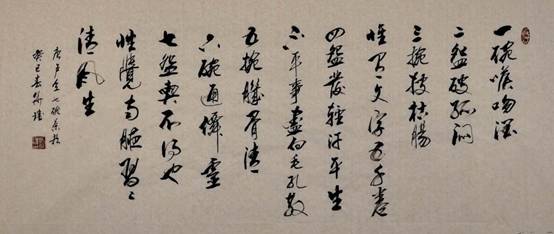 一碗喉吻潤
二盌破孤悶
三椀搜枯腸
惟有文字五千卷
四盌發輕汗平生
不平事盡向毛孔散
五椀肌骨清
六碗通僊靈
七盌喫不得也
惟覺兩腋習〻
清風生
唐卢仝七碗茶
癸巳春